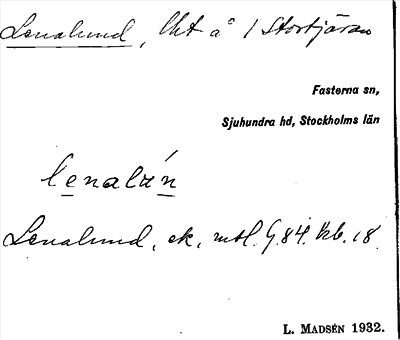 Lenalund, Uht å 1 Stortjäran
Fasterna sn,
Sjuhundra hd, Stockholms län
lenalún
Lenalund, ek, mtl. G.84. Kb. 18.
L. MADSÉN 1932.